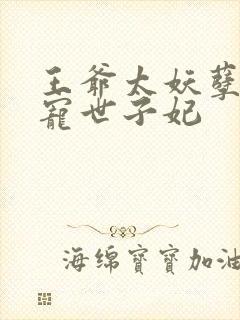 王爷太妖孽
宠世子妃
海绵寶寶加油